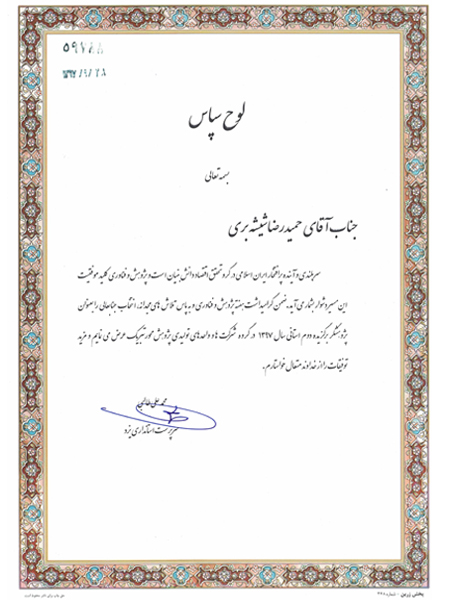 لوح سپاس
بسمه تعالی
جناب آقای حمیدرضا شیشه بری
سربلندی و آینده پرافتخار ایران اسلامی در گرو تحقق اقتصاد دانش بنیان است و پژوهش و فناوری کلید موفقیت
این مسیر دشوار بشمار می آید. ضمن گرامیداشت هفته پژوهش و فناوری و به پاس تلاش های مجدانه، انتخاب جنابعالی را بعنوان
پژوهشگر برگزیده دوم استانی سال ۱۳۹۷ در گروه شرکت ها و واحدهای تولیدی پژوهش محور تبریک عرض می نمایم و مزید
توفیقات را از خداوند متعال خواستارم.
محمد علی طالبی
سرپرست استانداری یزد